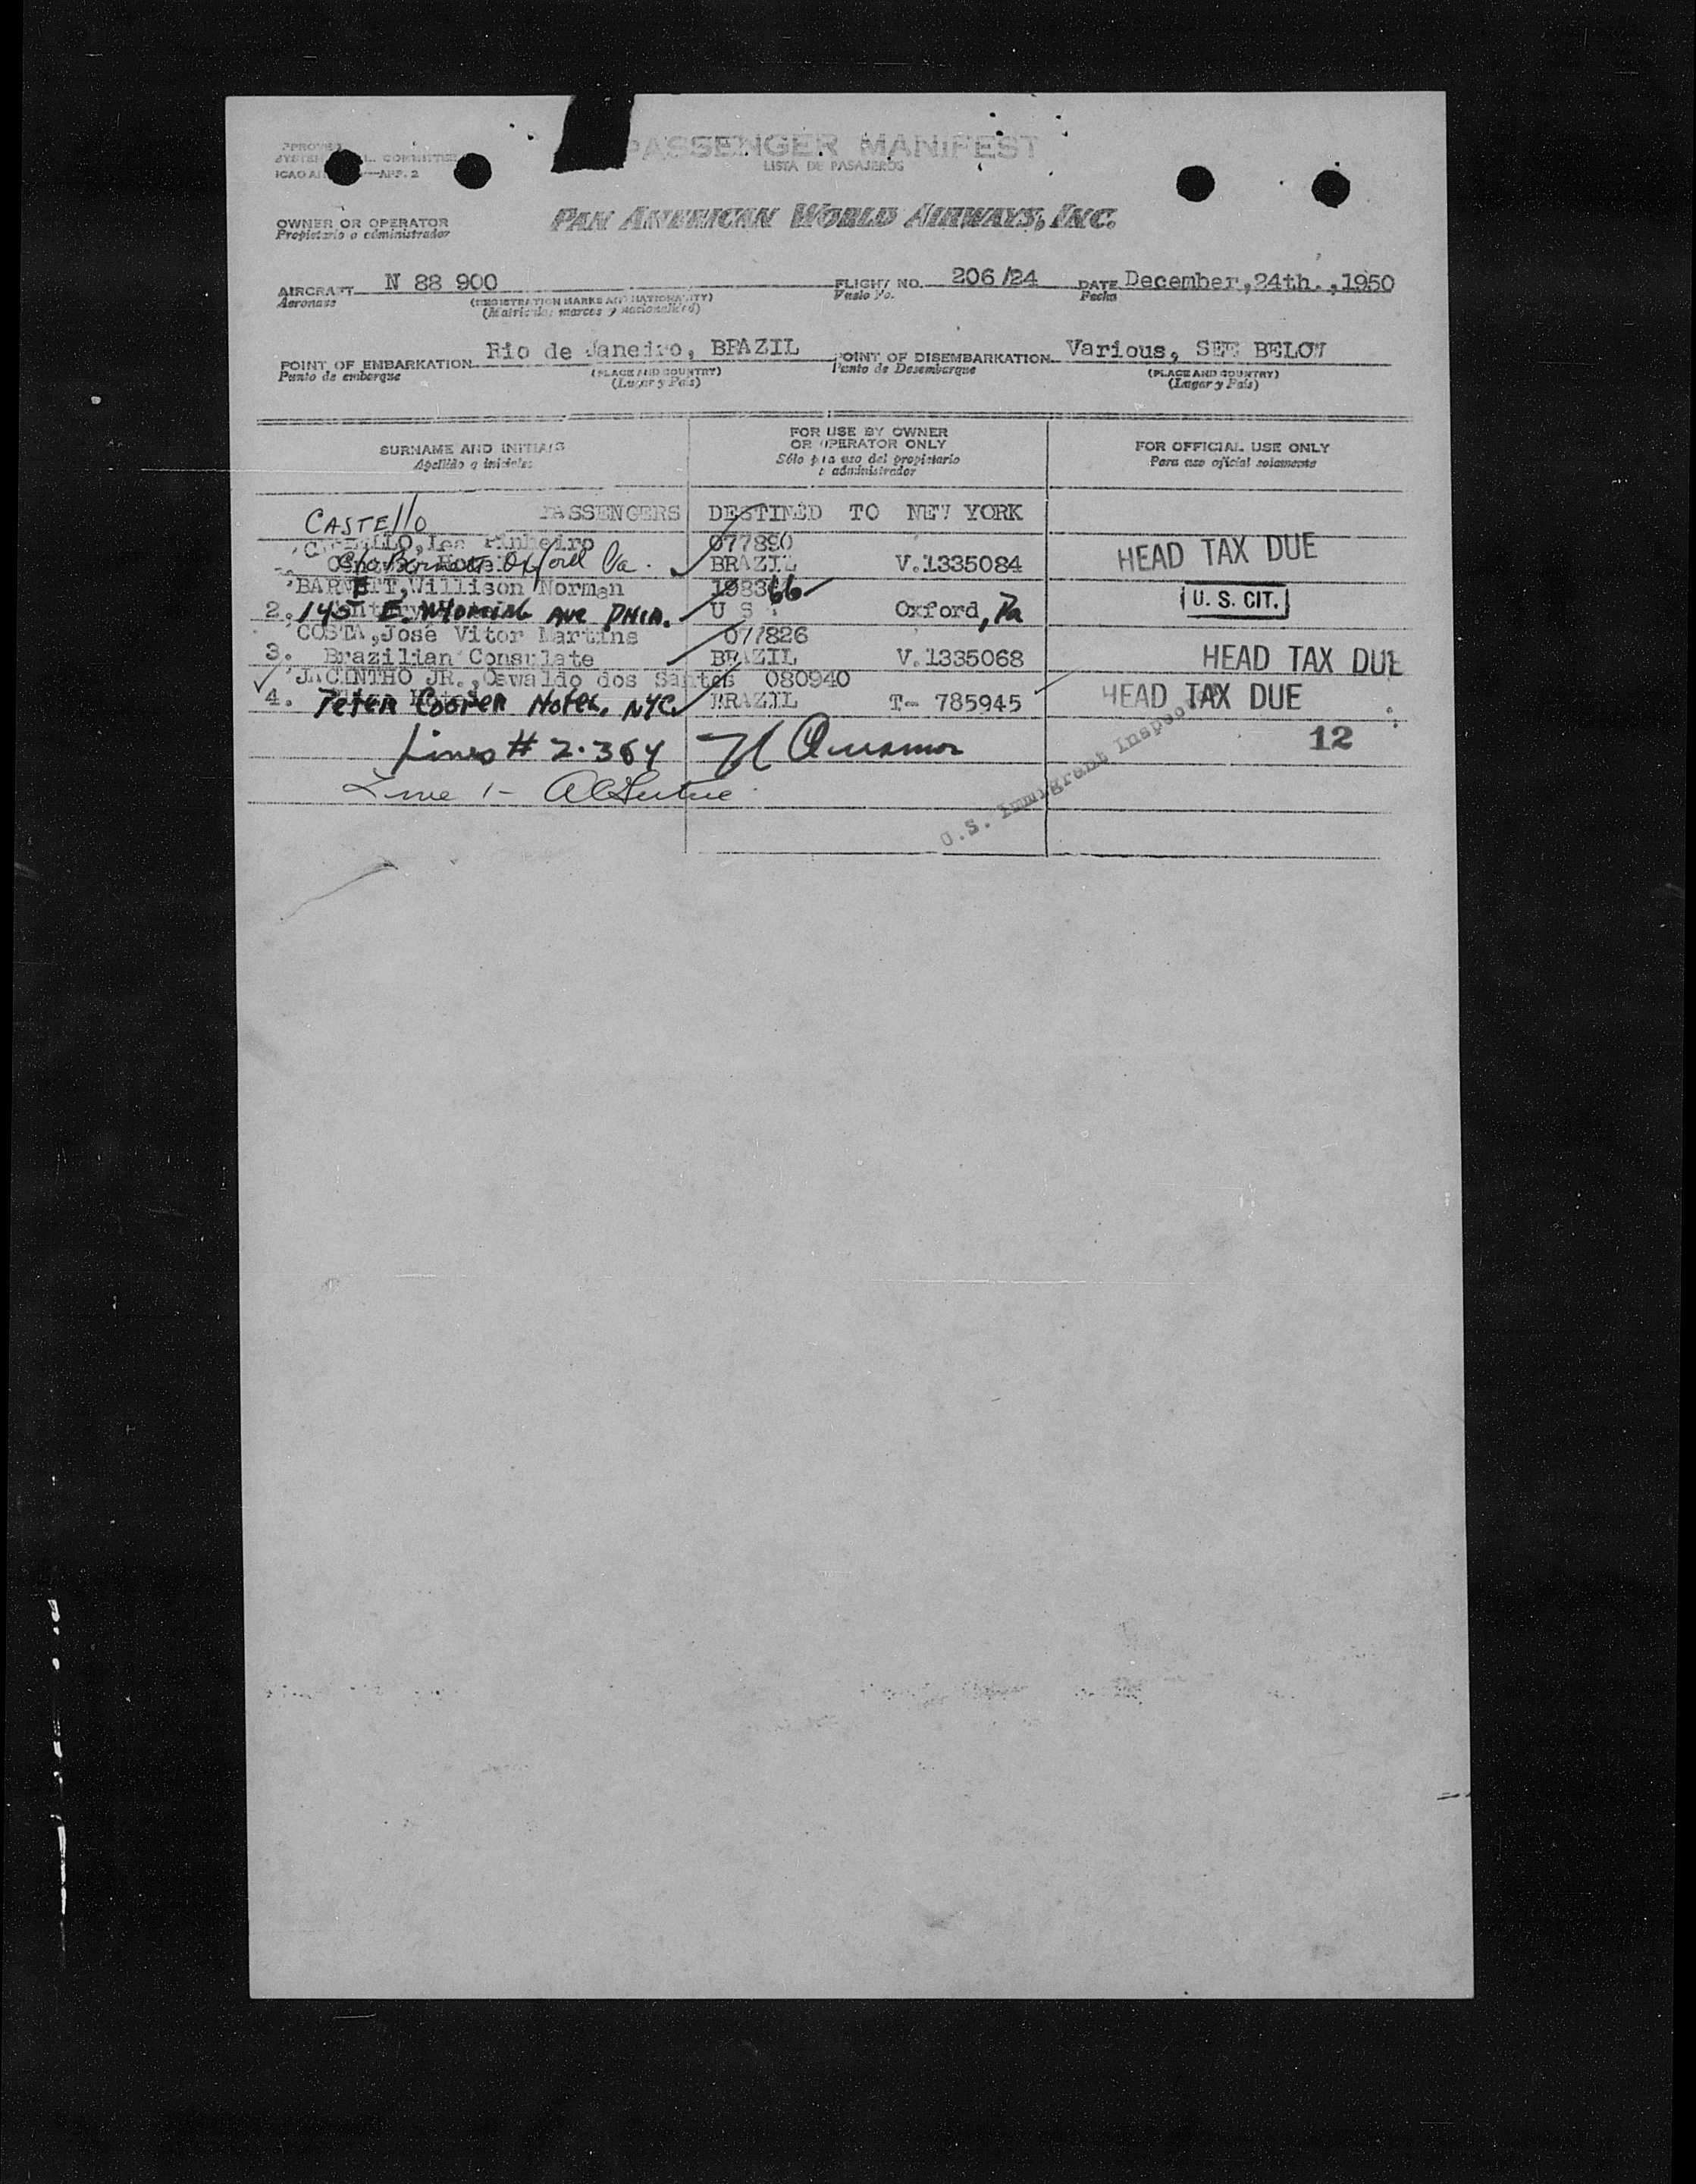 PASSENGER MANIFEST
LISTA DE PASAJEROS
APP. 2
OWNER OR OPERATOR
Propietario o administrador
PAN AMERICAN WORLD AIRWAYS, INC.
AIRCRAFT N 88 900 FLIGHT NO. 206/24 DATE December,24th.,1950
Aeronave (REGISTRATION MARKS AND NATIONALITY) Vuelo No. Fecha
(Matricula: marcas y nacionalidad)
POINT OF EMBARKATION Rio de Janeiro, BRAZIL POINT OF DISEMBARKATION Various, SEE BELOW
Punto de embarque (PLACE AND COUNTRY) Punto de Desembarque (PLACE AND COUNTRY)
(Lugar y País) (Lugar y País)
SURNAME AND INITIALS FOR USE BY OWNER OR OPERATOR ONLY FOR OFFICIAL USE ONLY
Apellido e iniciales Sólo para uso del propietario o administrador Para uso oficial solamente
PASSENGERS DESTINED TO NEW YORK
CASTELLO
Pinheiro 077890
c/o Barnett Oxford Pa. BRAZIL V.1335084 HEAD TAX DUE
BARNETT,Willison Norman 198366
2. 145 E. Wyoming Ave Phila. U S Oxford, Pa U. S. CIT.
COSTA,José Vitor Martins 077826
3. Brazilian Consulate BRAZIL V.1335068 HEAD TAX DUE
JACINTHO JR.,Oswaldo dos Santos 080940
4. Peter Cooper Hotel, NYC BRAZIL T- 785945 HEAD TAX DUE
Lines # 2.3&4 12
Line 1-
U.S. Immigrant Inspector